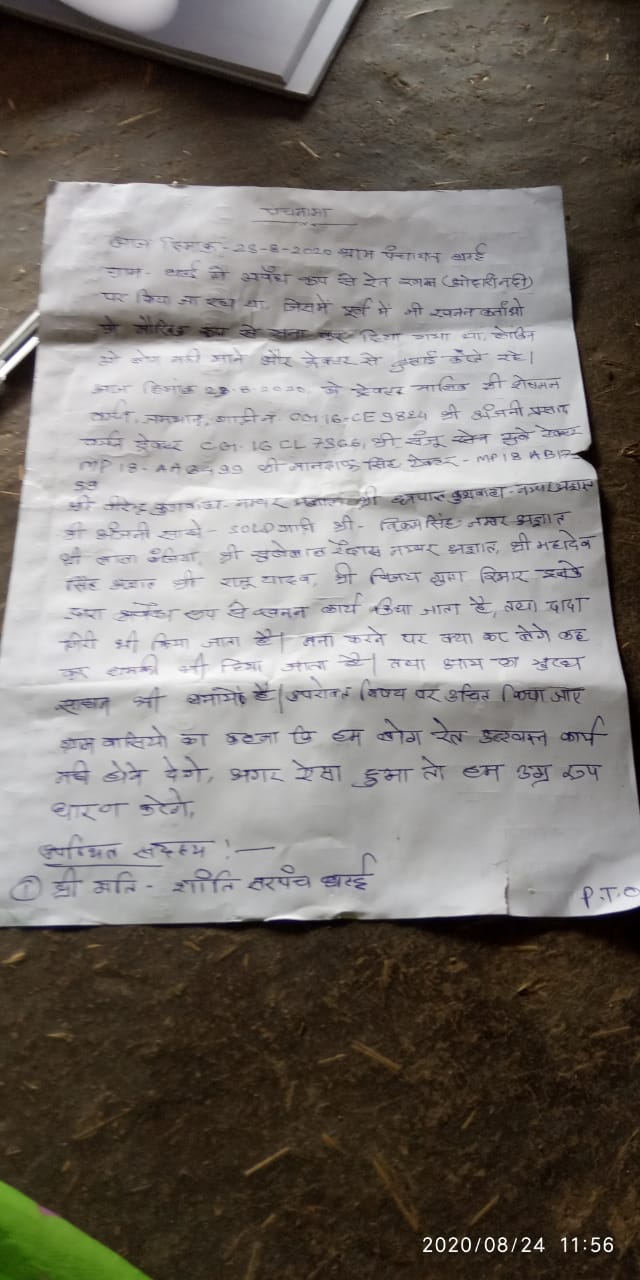 पंचनामा
आज दिनांक - 23-8-2020 ग्राम पंचायत बरई
ग्राम - बरई में अवैध रूप से रेत खनन (ओदारी नदी)
पर किया जा रहा था, जिसमें पूर्व में भी खनन कर्ताओं
को मौखिक रूप से मना कर दिया गया था, लेकिन
वो लोग नहीं माने और ट्रेक्टर से ढुलाई करते रहे।
आज दिनांक 23-8-2020, को ट्रेक्टर मालिक श्री
CG16-CE9884 श्री अंजनी प्रसाद
ट्रेक्टर CG-16CL7366, श्री
MP18-AA8499 श्री सिंह ट्रेक्टर - MP18AB12
59
श्री कुशवाहा - नम्बर अज्ञात श्री कुशवाहा - नम्बर अज्ञात
श्री अंजनी - SOLD गाड़ी श्री - विक्रम सिंह - नम्बर अज्ञात
श्री लाला श्री रैदास नम्बर अज्ञात, श्री महादेव
सिंह अज्ञात श्री रामू यादव, श्री विजय गुप्ता
द्वारा अवैध रूप से खनन कार्य किया जाता है, तथा दादा
गिरी भी किया जाता है। मना करने पर क्या कर लोगे कह
कर धमकी भी दिया जाता है। तथा आय का मुख्य
साधन भी बनाये है। उपरोक्त विषय पर उचित किया जाए
ग्राम वासियों का कहना कि हम लोग रेत उत्खनन कार्य
नहीं होने देंगे, अगर ऐसा हुआ तो हम उग्र रूप
धारण करेंगे,
उपस्थित सदस्य : —
① श्री मति - शांति सरपंच बरई
P.T.O
2020/08/24 11:56